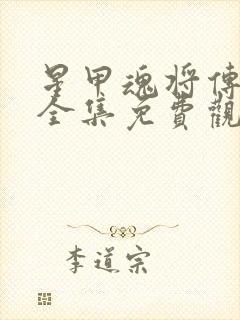 星甲魂将傳
全集免費觀
李道宗